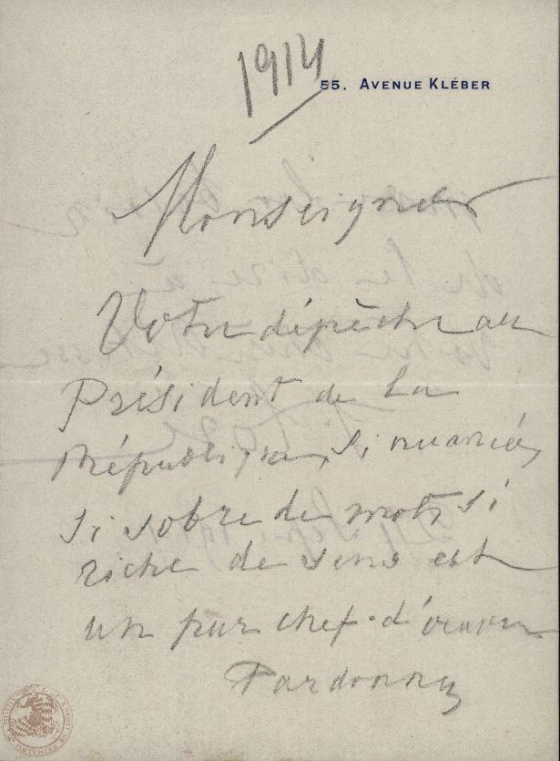 1914
55. AVENUE KLÉBER
Monseigneur
Votre dépèche au
Président de la
République, si nuancée,
si sobre de mots, si
riche de sens est
un pur chef-d'œuvre
Pardonnez